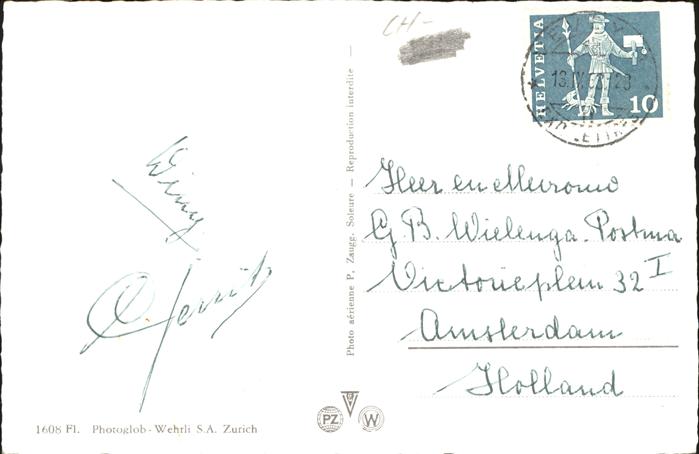 CH-
HELVETIA
10
Winy
Gerrit
Heer en Mevrouw
G. B. Wielenga-Postma
Victorieplein 32 I
Amsterdam
Holland
Photo aérienne P. Zaugg, Soleure — Reproduction interdite —
PZ
W
1608 Fl. Photoglob-Wehrli S.A. Zurich